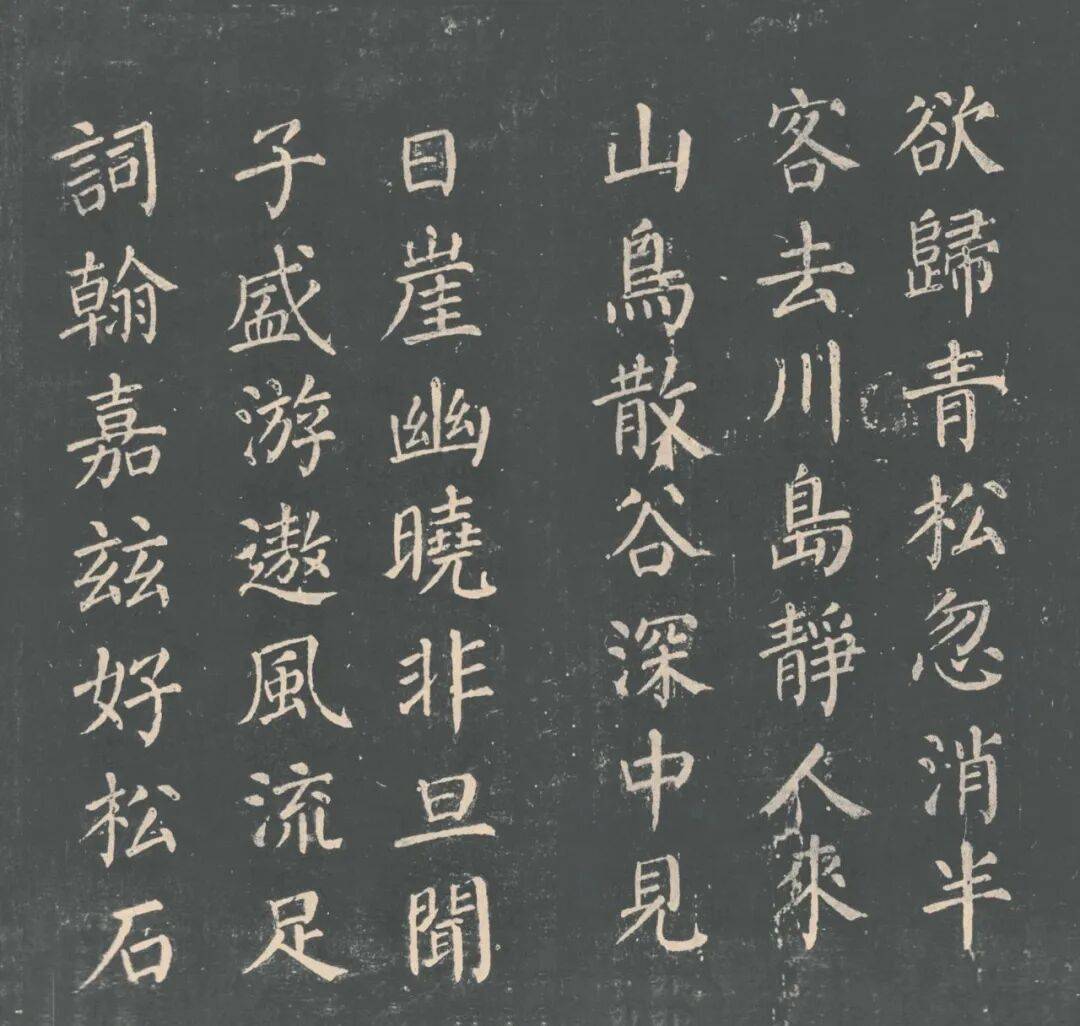 欲歸青松忽消半
客去川島靜人來
山鳥散谷深中見
日崖幽曉非旦聞
子盛游遨風流足
詞翰嘉玆好松石